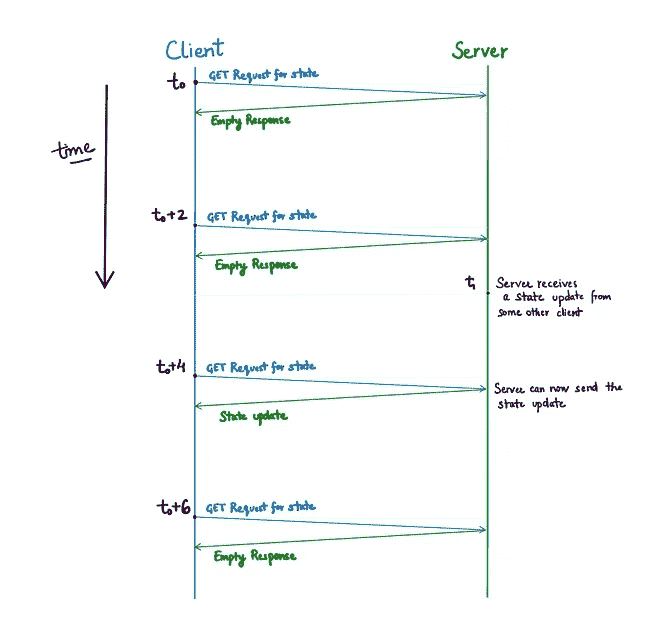 Client
Server
t₀
GET Request for state
Empty Response
time
t₀+2
GET Request for state
Empty Response
t₁
Server receives
a state update from
some other client
t₀+4
GET Request for state
Server can now send the
state update
State update
t₀+6
GET Request for state
Empty Response